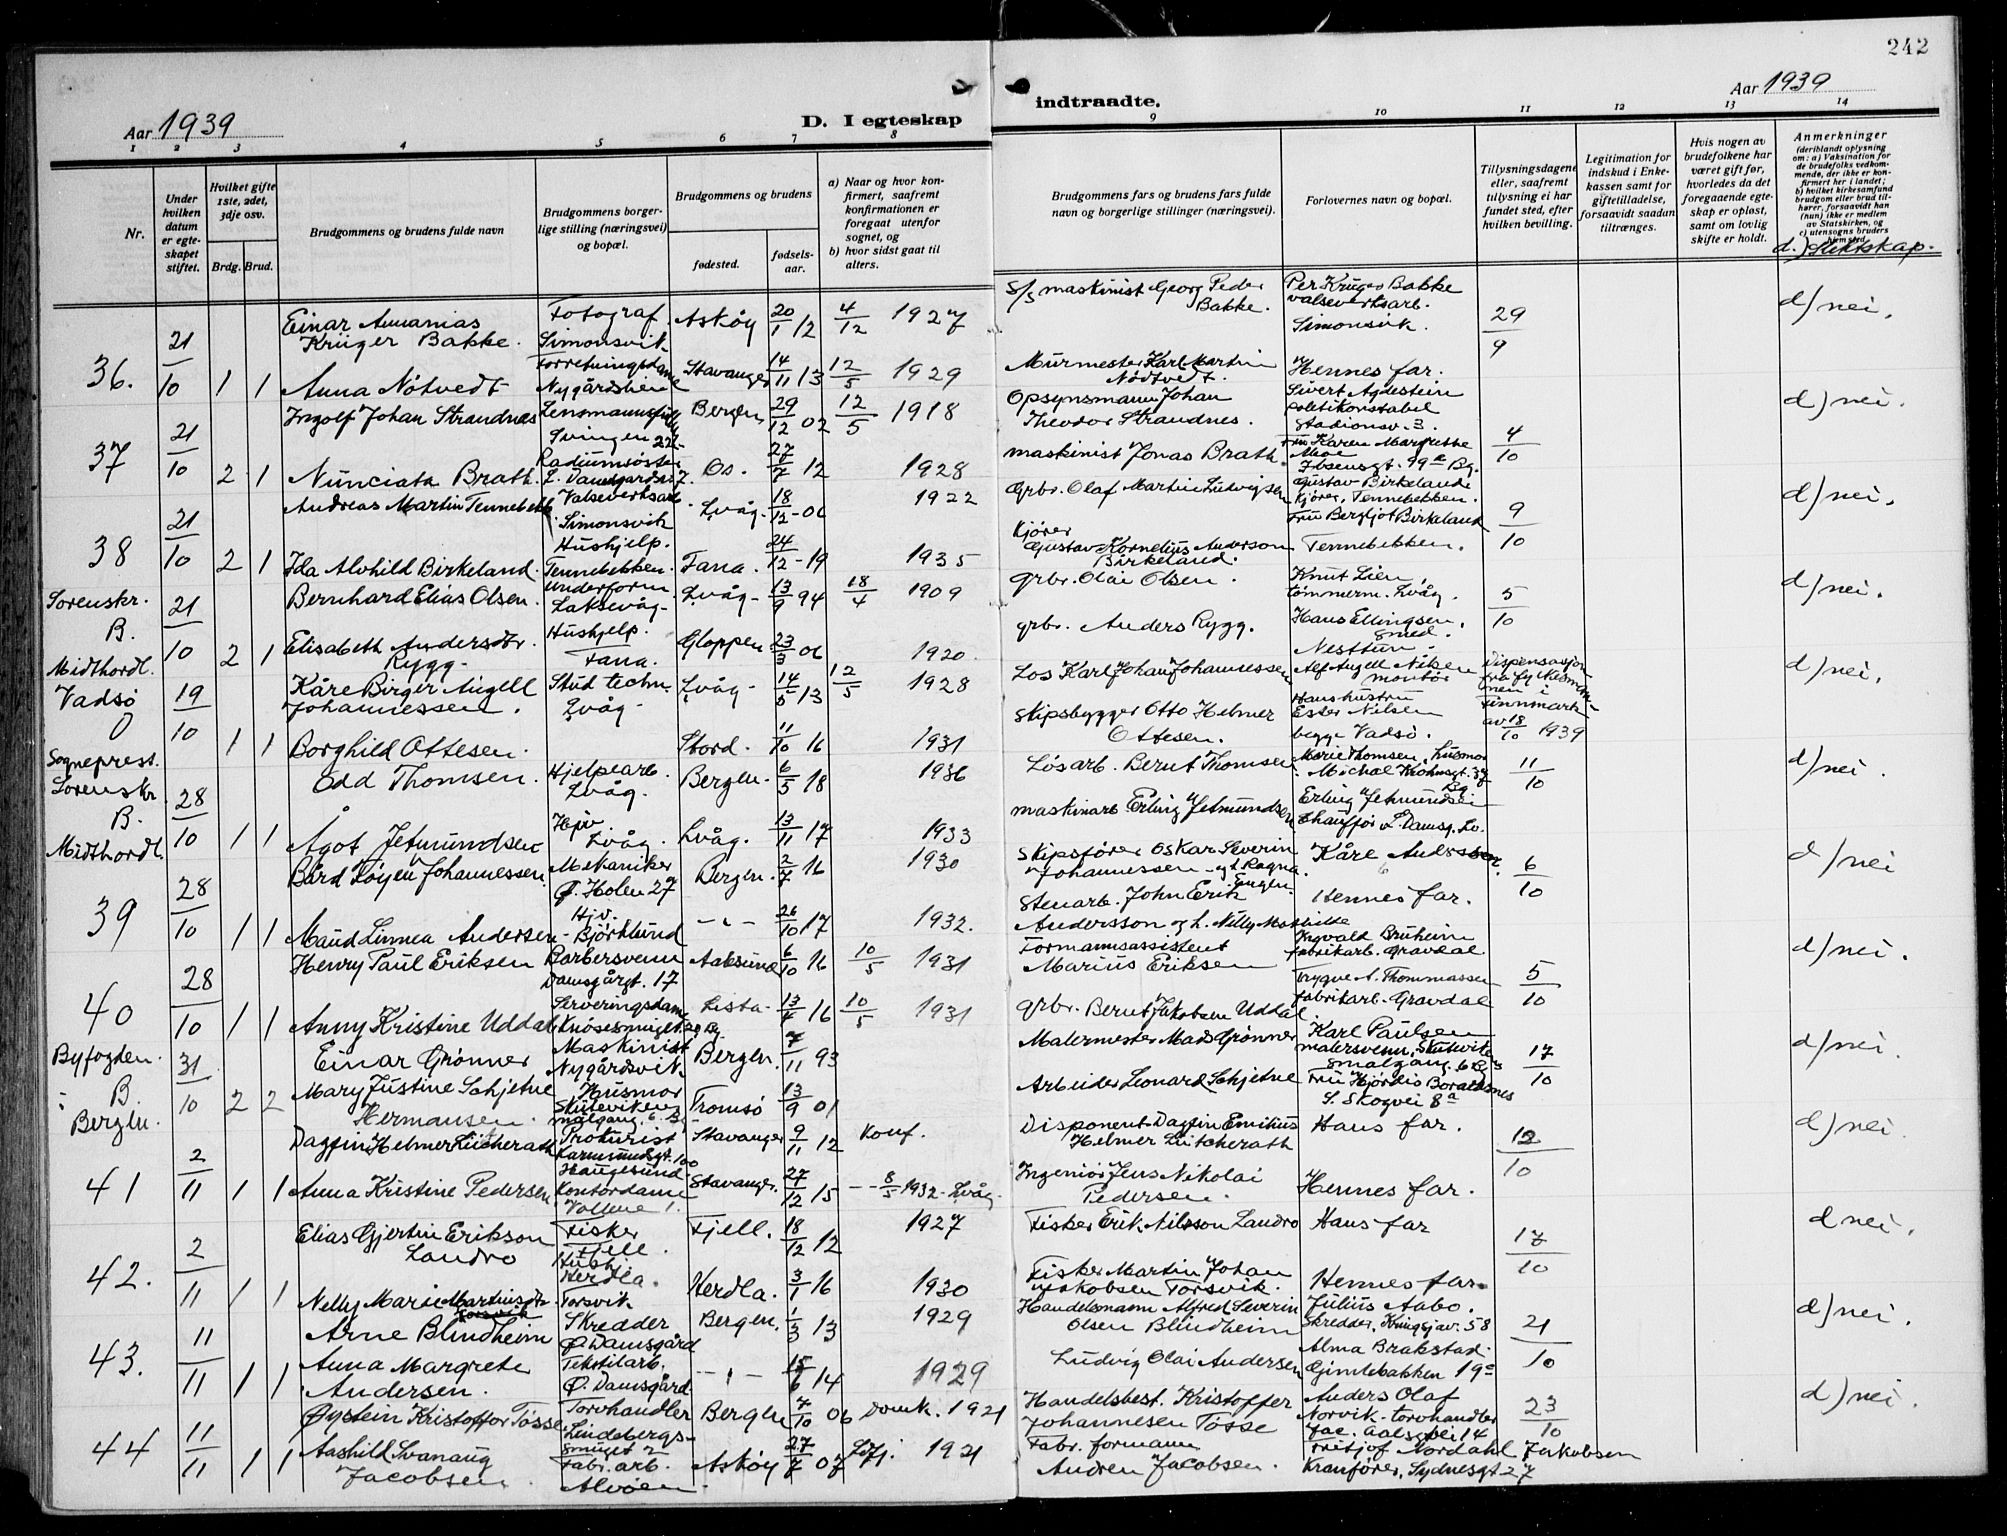 242
Aar 1939
D. I egteskap
indtraadte.
Aar 1939
1 2 3 4 5 6 7 8 9 10 11 12 13 14
Nr.
Under hvilken datum er egteskapet stiftet.
Hvilket gifte 1ste, 2det, 3dje osv.
Brdg. Brud.
Brudgommens og brudens fulde navn
Brudgommens borgerlige stilling (næringsvei) og bopæl.
Brudgommens og brudens
fødested.
fødselsaar.
a) Naar og hvor konfirmert, saafremt konfirmationen er foregaat utenfor sognet, og
b) hvor sidst gaat til alters.
Brudgommens fars og brudens fars fulde navn og borgerlige stillinger (næringsvei).
Forlovernes navn og bopæl.
Tillysningsdagene eller, saafremt tillysning ei har fundet sted, efter hvilken bevilling.
Legitimation for indskud i Enkekassen samt for giftetilladelse, forsaavidt saadan tiltrænges.
Hvis nogen av brudefolkene har været gift før, hvorledes da det foregaaende egteskap er opløst, samt om lovlig skifte er holdt.
Anmerkninger (deriblandt oplysning om: a) Vaksination for de brudefolks vedkommende, der ikke er konfirmert her i landet; b) hvilket kirkesamfund brudgom eller brud tilhører, forsaavidt han (hun) ikke er medlem av Statskirken, og c) utensogns bruders hjemsted.
d.) Slektskap.
36. 21/10 1 1
Einar Annanias Krüger Bakke. Fotograf Simonsvik Askøy 20/1 12 4/12 1927
S/S maskinist Georg Peder Bakke. Per Krüger Bakke valseverksarb. Simonsvik. 29/9 d/ nei.
Anna Nötvedt Forretningsdame Stavanger 14/11 13 12/5 1929
Murmester Karl Martin Nødtvedt. Hennes far.
37 21/10 2 1
Ingolf Johan Strandnes Lensmannsfullm. Bergen 29/12 02 12/5 1918
Opsynsmann Johan Theodor Strandnes. Sivert Agdestein politikonstabel Stadionsv. 3. 4/10 d) nei.
Nunciata Brath. Radiumsøster Os. 27/7 12 1928
maskinist Jonas Brath. Fru Karen Margrethe Moe Ibsensgt. 99 Bg.
38 21/10 2 1
Andreas Martin Tennebekk Valseverksarb. Simonsvik Lvåg. 18/12 06 1922
Grbr. Olaf Martin Ludvigsen Gustav Birkeland Kjører, Tennebekken. 9/10 d/ nei.
Ida Alvhild Birkeland. Hushjelp. Tennebekken. Fana. 24/12 19 1935
Kjører Gustav Kornelius Anderson Birkeland. Fru Bergljot Birkeland Tennebekken.
Sorenskr. B. Midthordl. 21/10 2 1
Bernhard Elias Olsen. Underform. Laksevåg Lvåg 13/9 94 18/4 1909
grbr. Olai Olsen. Knut Lien tømmerm. Lvåg. 5/10 d/ nei.
Elisabeth Andersdtr Rygg. Hushjelp. Fana. Gloppen 23/3 06 1920
grbr. Anders Rygg. Hans Ellingsen, smed. Nesttun.
Vadsø Sogneprest. 19/10 1 1
Kåre Birger Angell Johannessen. Stud techn. Lvåg Lvåg 14/5 13 12/5 1928
Los Karl Johan Johannessen Alf Angell Nilsen montør Dispensasjon fra fylkesmannen i Finnmark av 18/10 1939 d/ nei.
Borghild Ottesen. Stord. 11/10 16 1931
Skipsbygger Otto Helmer Ottesen. Hans hustru Ester Nilsen begge Vadsø.
Sorenskr. B. Midthordl. 28/10 1 1
Odd Thomsen. Hjelpearb. Lvåg. Bergen 6/5 18 1936
Løsarb. Bernt Thomsen Marie Thomsen, husmor Michal Krohnsgt. 37 Bg. 11/10 d/ nei.
Ågot Jetmundsen Hjv Lvåg. Lvåg. 13/11 17 1933
maskinarb Erling Jetmundsen Erling Jetmundsen chauffør L. Damsg. Lv.
39 28/10 1 1
Bård Løyen Johannessen. Mekaniker Ø. Holen 27 Bergen. 2/7 16 1930
Skipsfører Oskar Severin Johannessen og h. Ragna Eugen. Kåre Anderssen. 6/10 d/ nei
Maud Linnea Andersen Hjv. Björklund - " - 26/10 17 1932.
Stenarb. John Erik Andersson og h. Nelly Mathilde Hennes far.
40 28/10 1 1
Henry Paul Eriksen Barbersvenn Damsgårgt. 17 Aalesund 6/10 16 10/5 1931
Formannsassistent Marius Eriksen Ingvald Bruheim fabrikarb. Gravdal 5/10 d/ nei.
Anny Kristine Uddal Serveringsdame Lista 13/4 16 10/5 1931
grbr. Bernt Jakobsen Uddal. Trygve A. Thommassen fabrikarb. Gravdal
Byfogden i B. Bergen. 31/10 2 2
Einar Grønner Maskinist Nygårdsvik Bergen. 7/11 93
Malermester Mads Grønner Karl Paulsen malersvenn, Skutevikens smalgang 6 Bg 17/10 d/ nei.
Mary Justine Schjetne Hermansen. Husmor Skutevikens smalgang 6 Bg Tromsø 13/9 01
Arbeider Leonard Schjetne Fru Hjørdis S. Skogvei 8a
41 2/11 1 1
Dagfin Helmer Lütcherath Prokurist Karmsundsgt. 100 Haugesund. Stavanger 9/11 12 konf.
Disponent Dagfin Emilius Helmer Lütcherath Hans far. 12/10 d) nei.
Anna Kristine Pedersen Kontordame Stavanger. 27/12 15 8/5 1932 Lvåg.
Ingeniør Jens Nikolai Pedersen. Hennes far.
42. 2/11 1 1
Elias Gjertin Erikson Landro Fisker Fjell. Fjell. 18/12 12 1927
Fisker Erik Nilsson Landro Hans far 17/10 d nei.
Nelly Marie Martinsdtr Torsvik Hushj Herdla. Torsvik Herdla. 3/1 16 1930
Fisker Martin Johan Jakobsen Torsvik. Hennes far.
43. 11/11 1 1
Arne Blindheim Skredder Ø. Damsgård Bergen. 1/3 13 1929
Handelsmann Alfred Severin Olsen Blindheim Julius Aabo. Skredder, Kringsjåv. 58 21/10 d) nei.
Anna Margrete Andersen. Tekstilarb. Ø. Damsgård - " - 15/6 14 1929
Ludvig Olai Andersen Alma Brakstad Gimlebakken 19
44 11/11 1 1
Øystein Kristoffer Tøsse Torvhandler Lindebergssmuget 2 Bergen 4/10 06 Domk. 1921
Handelsbest. Kristoffer Johannesen Tøsse Anders Olaf Norvik - torvhandler Jac. Aalsvei 14 23/10 d) nei.
Aashild Svanaug Jacobsen Fabr. arb. Alvøen. Askøy 27/7 07 1921
Fabr. formann Andren Jacobsen. Fritjof Nordahl Jakobsen Kranfører, Sydnesgt 27